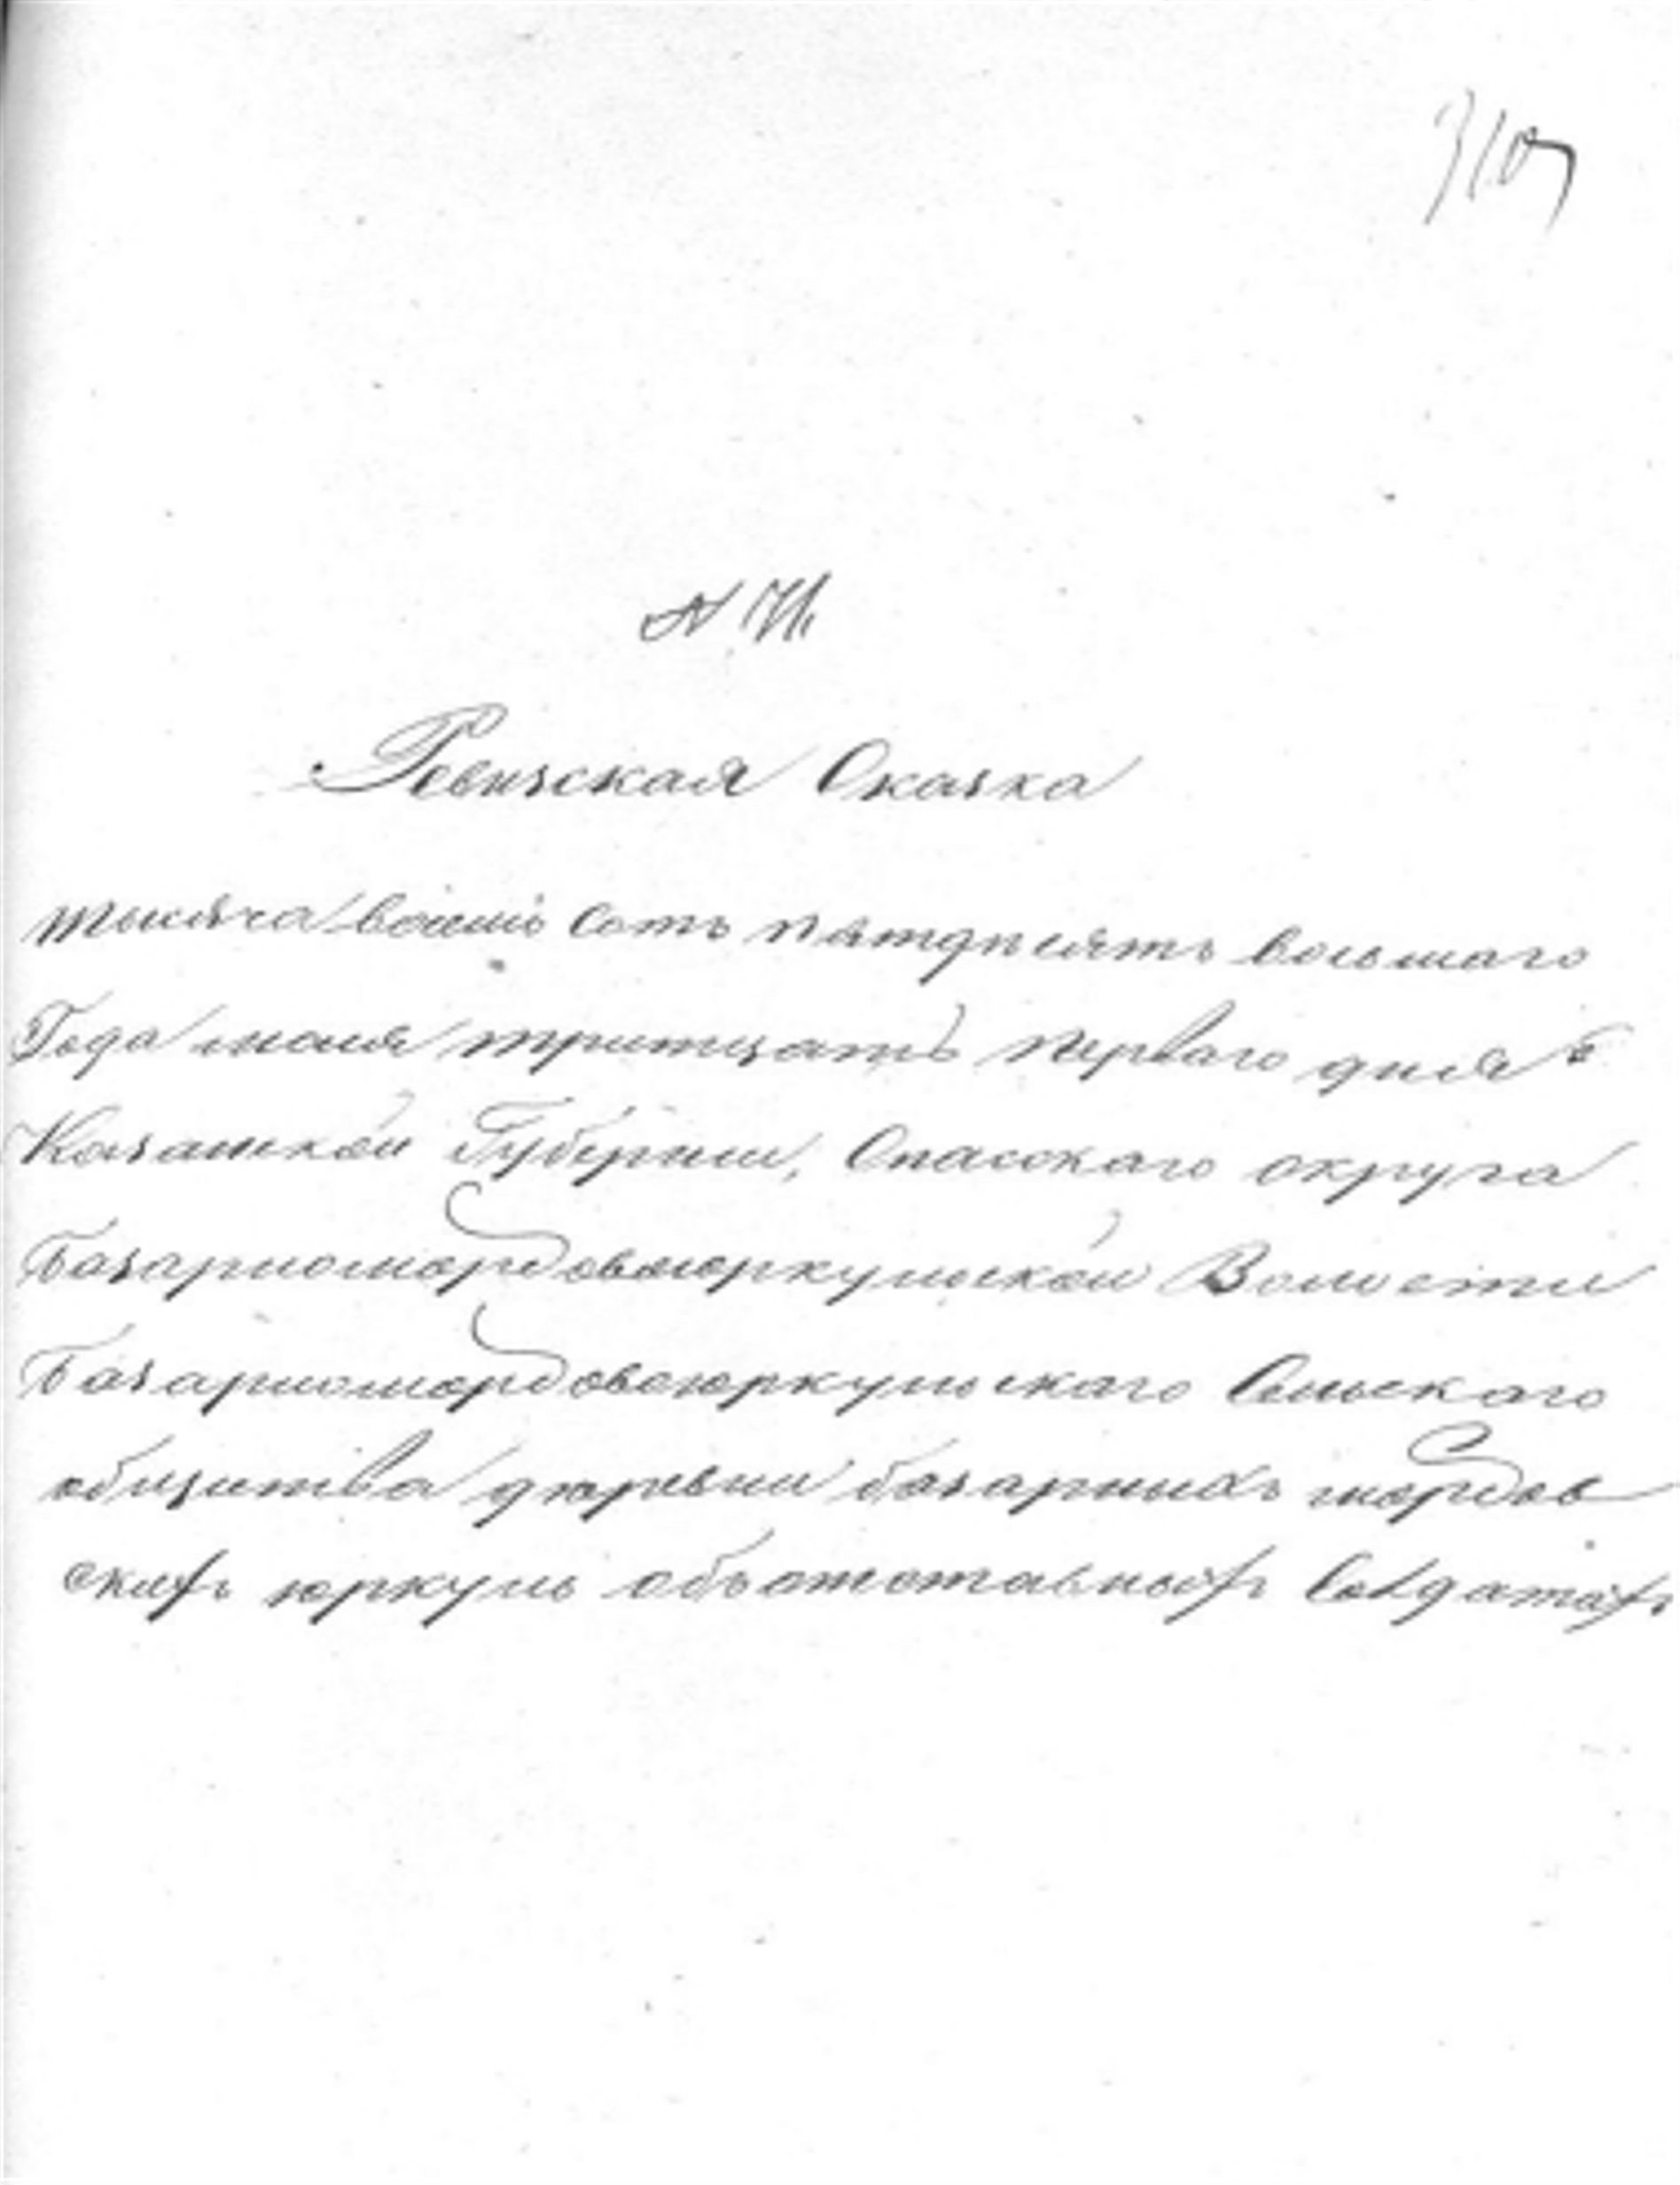 Ревизская Сказка
тысяча восемь сотъ пятдесятъ восьмаго
Года маия тритцать перваго дня
Казанской Губернии, Спасскаго округа
Базарномордовоюркульской Волости
Базарномордовоюркульскаго Сельскаго
общества деревни базарныхъ мордов
скихъ юркуль объ отставныхъ Солдатахъ